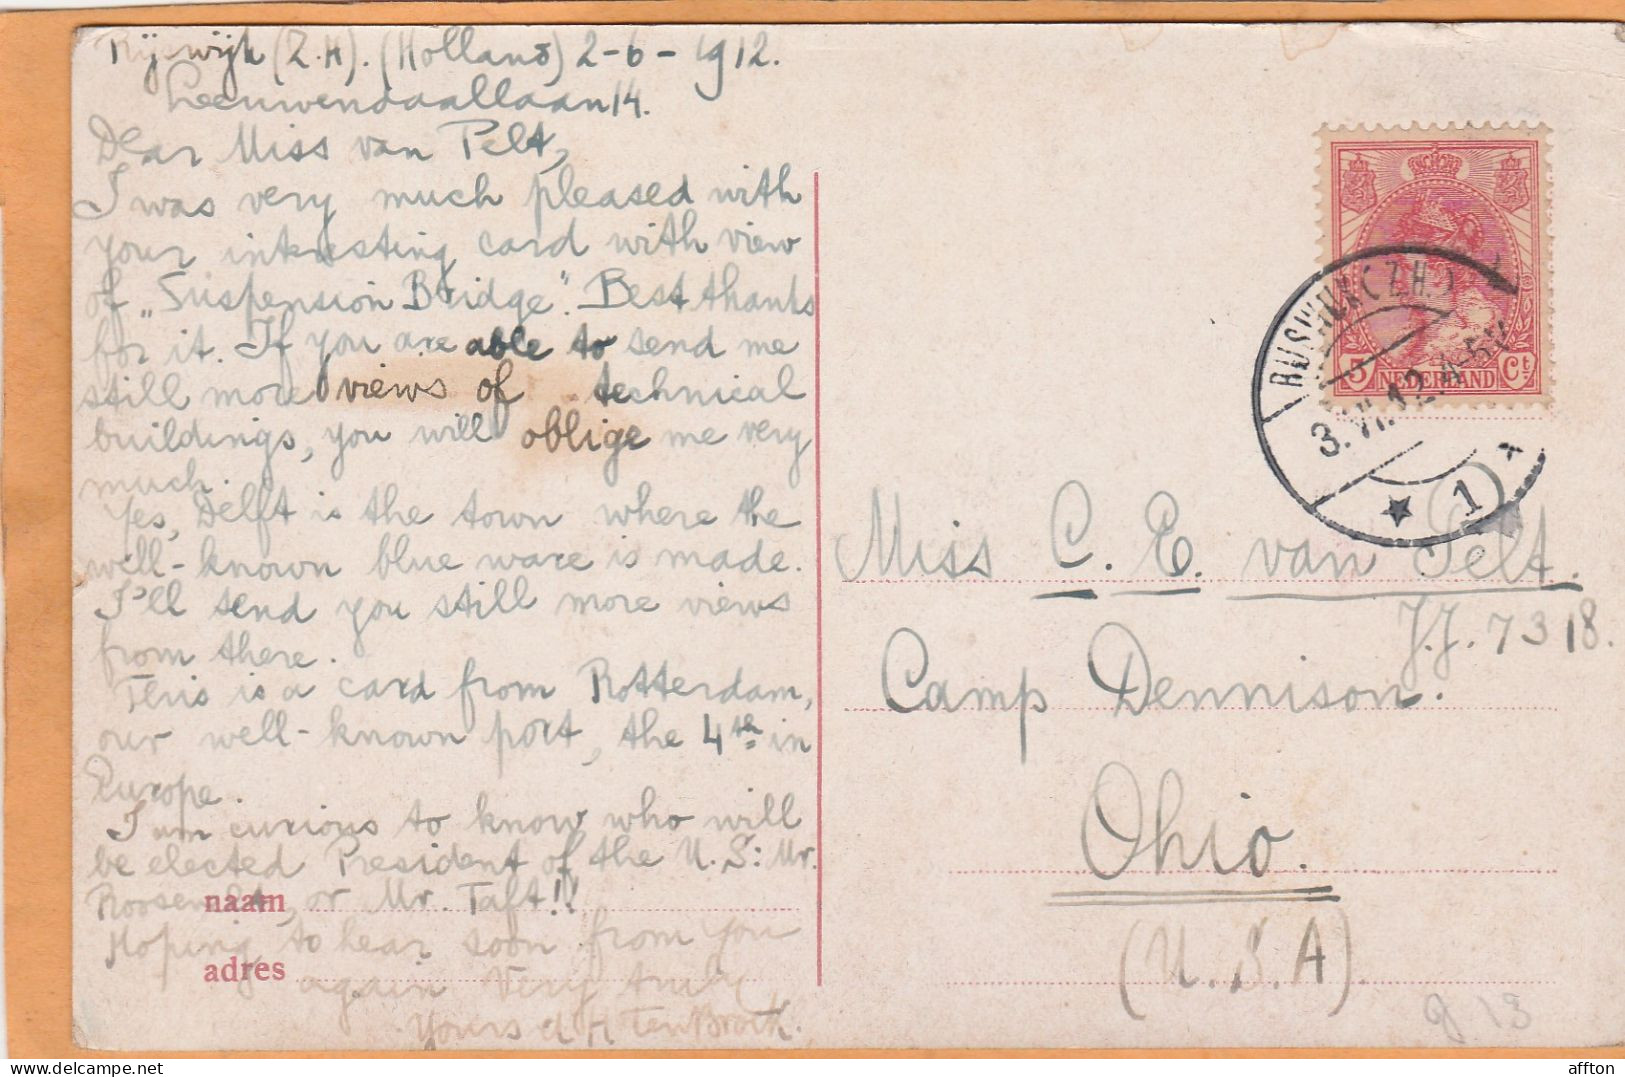 Rijswijk (Z.H). (Holland) 2-6-1912.
Leeuwendaallaan 14.
Dear Miss van Pelt,
I was very much pleased with
your interesting card with view
of „Suspension Bridge". Best thanks
for it. If you are able to send me
still more views of technical
buildings, you will oblige me very
much.
Yes, Delft is the town where the
well-known blue ware is made.
I'll send you still more views
from there.
This is a card from Rotterdam,
our well-known port, the 4th in
Europe.
I am curious to know who will
be elected President of the U.S: Mr.
Roosevelt, or Mr. Taft!!
naam
Hoping to hear soon from you
adres
again Very truly
Yours
NEDERLAND
5 Ct
RIJSWIJK (Z.H.)
3.VI.12.
1
Miss C. E. van Pelt.
J.J. 7318.
Camp Dennison.
Ohio.
(U.S.A).
affton